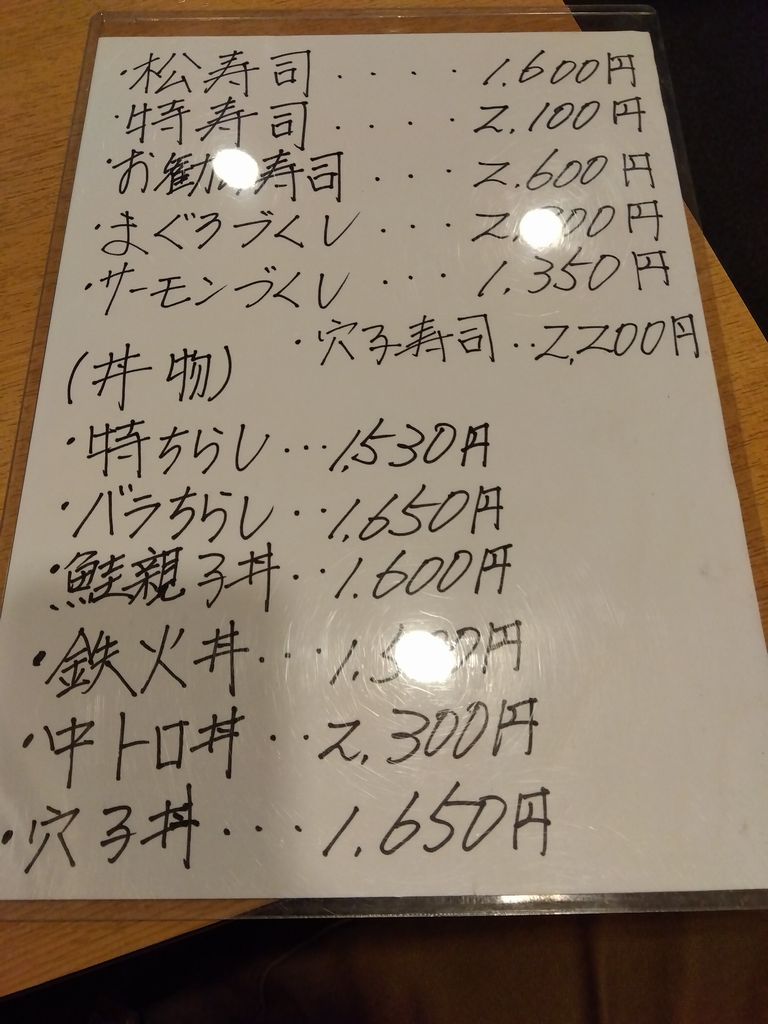 ・松寿司・・・・1,600円
・特寿司・・・・2,100円
・お勧め寿司・・・2,600円
・まぐろづくし・・・
・サーモンづくし・・・1,350円
・穴子寿司・・2,200円
(丼物)
・特ちらし・・・1,530円
・バラちらし・・1,650円
・鮭親子丼・・1,600円
・鉄火丼・・・
・中トロ丼・・2,300円
・穴子丼・・・1,650円